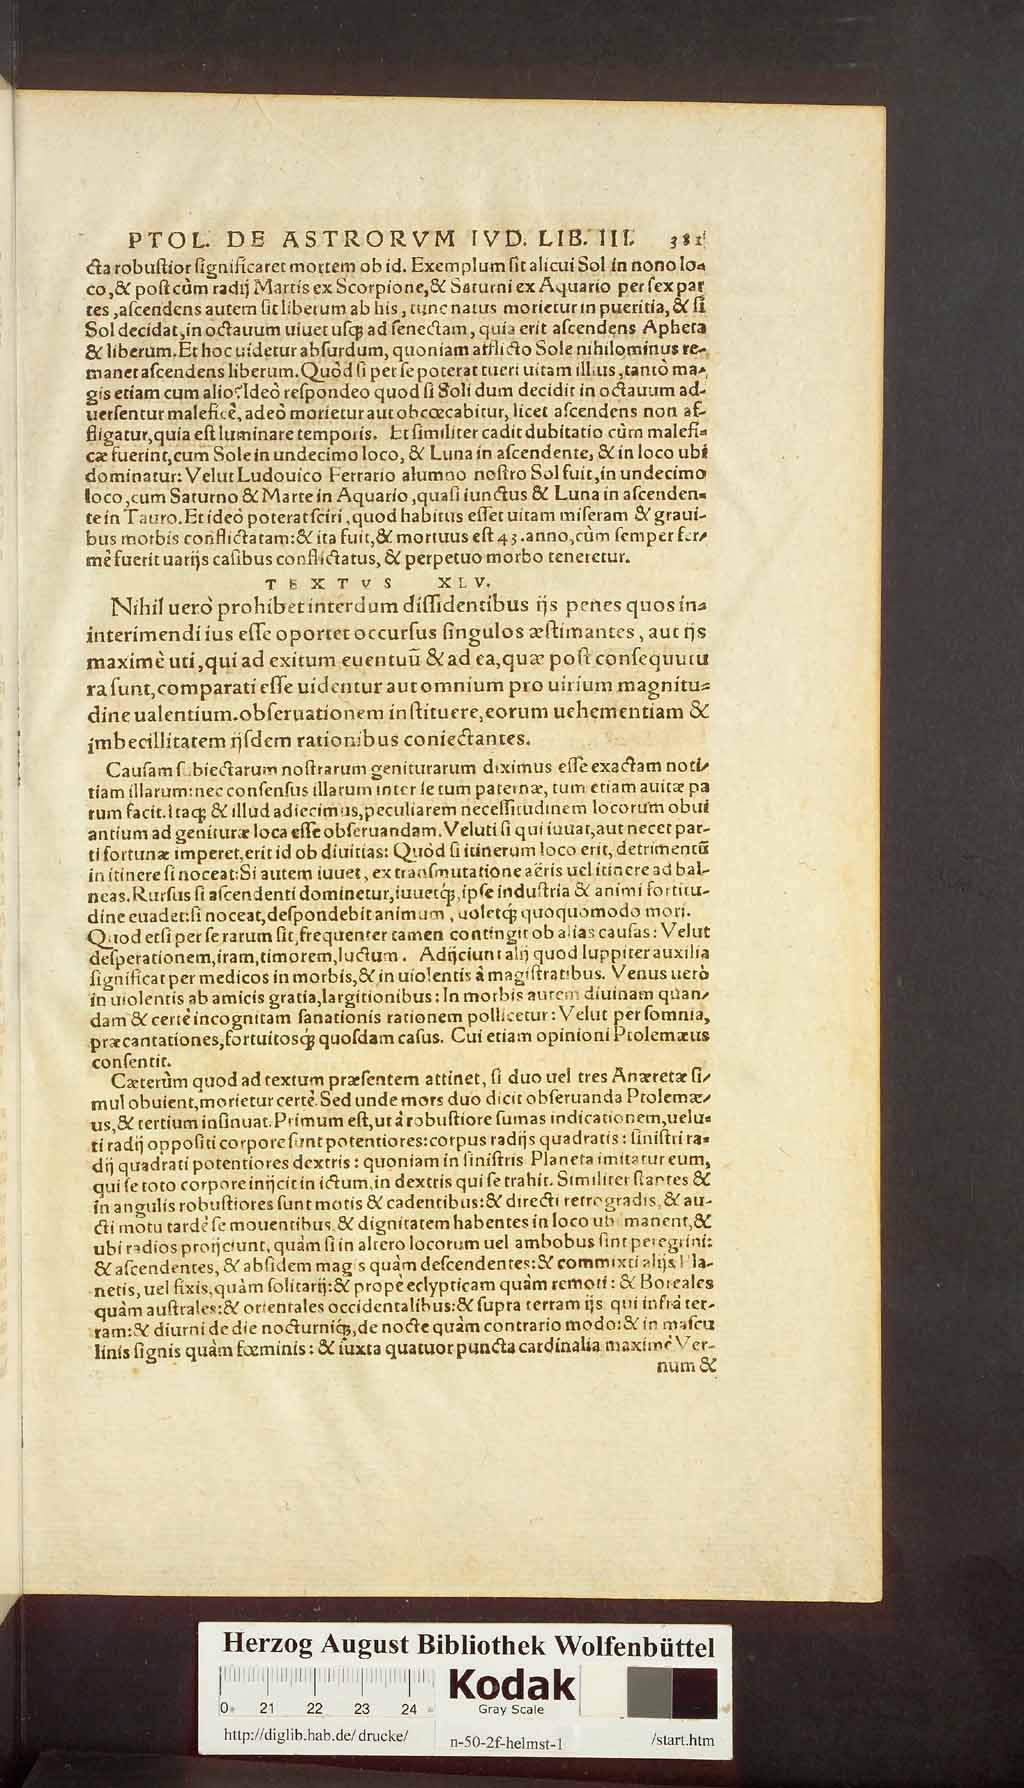 PTOL. DE ASTRORVM IVD. LIB. III. 381
cta robuſtior ſignificaret mortem ob id. Exemplum ſit alicui Sol in nono lo-
co, & poſt cùm radij Martis ex Scorpione, & Saturni ex Aquario per ſex par
tes, aſcendens autem ſit liberum ab his, tunc natus morietur in pueritia, & ſi
Sol decidat, in octauum uiuet uſq; ad ſenectam, quia erit aſcendens Apheta
& liberum. Et hoc uidetur abſurdum, quoniam afflicto Sole nihilominus re-
manet aſcendens liberum. Quòd ſi per ſe poterat tueri uitam illius, tantò ma-
gis etiam cum alio? Ideò reſpondeo quod ſi Soli dum decidit in octauum ad-
uerſentur maleficę, adeò morietur aut obcœcabitur, licet aſcendens non af-
fligatur, quia eſt luminare temporis. Et ſimiliter cadit dubitatio cùm malefi-
cæ fuerint, cum Sole in undecimo loco, & Luna in aſcendente, & in loco ubi
dominatur: Velut Ludouico Ferrario alumno noſtro Sol fuit, in undecimo
loco, cum Saturno & Marte in Aquario, quaſi iunctus & Luna in aſcenden-
te in Tauro. Et ideò poterat ſciri, quod habitus eſſet uitam miſeram & graui-
bus morbis conflictatam: & ita fuit, & mortuus eſt 43. anno, cùm ſemper fer-
mè fuerit uarijs caſibus conflictatus, & perpetuo morbo teneretur.
TEXTVS XLV.
Nihil uerò prohibet interdum diſſidentibus ijs penes quos in-
interimendi ius eſſe oportet occurſus ſingulos æſtimantes, aut ijs
maximè uti, qui ad exitum euentuũ & ad ea, quæ poſt conſequutu
ra ſunt, comparati eſſe uidentur aut omnium pro uirium magnitu-
dine ualentium. obſeruationem inſtituere, eorum uehementiam &
imbecillitatem ijſdem rationibus coniectantes.
Cauſam ſubiectarum noſtrarum geniturarum diximus eſſe exactam noti-
tiam illarum: nec conſenſus illarum inter ſe tum paternæ, tum etiam auitæ pa
rum facit. Itaq; & illud adiecimus, peculiarem neceſſitudinem locorum obui
antium ad genituræ loca eſſe obſeruandam. Veluti ſi qui iuuat, aut necet par-
ti fortunæ imperet, erit id ob diuitias: Quòd ſi itinerum loco erit, detrimentũ
in itinere ſi noceat: Si autem iuuet, ex tranſmutatione aëris uel itinere ad bal-
neas. Rurſus ſi aſcendenti dominetur, iuuetq́;, ipſe induſtria & animi fortitu-
dine euadet: ſi noceat, deſpondebit animum, uoletq́; quoquomodo mori.
Quod etſi per ſe rarum ſit, frequenter tamen contingit ob alias cauſas: Velut
deſperationem, iram, timorem, luctum. Adijciunt alij quod Iuppiter auxilia
ſignificat per medicos in morbis, & in uiolentis à magiſtratibus. Venus uerò
in uiolentis ab amicis gratia, largitionibus: In morbis autem diuinam quan-
dam & certè incognitam ſanationis rationem pollicetur: Velut per ſomnia,
præcantationes, fortuitosq́; quoſdam caſus. Cui etiam opinioni Ptolemæus
conſentit.
Cæterùm quod ad textum præſentem attinet, ſi duo uel tres Anæretæ ſi-
mul obuient, morietur certè. Sed unde mors duo dicit obſeruanda Ptolemæ-
us, & tertium inſinuat. Primum eſt, ut à robuſtiore ſumas indicationem, uelu-
ti radij oppoſiti corpore ſunt potentiores: corpus radijs quadratis: ſiniſtri ra-
dij quadrati potentiores dextris: quoniam in ſiniſtris Planeta imitatur eum,
qui ſe toto corpore inijcit in ictum, in dextris qui ſe trahit. Similiter ſtantes &
in angulis robuſtiores ſunt motis & cadentibus: & directi retrogradis, & au-
cti motu tardè ſe mouentibus, & dignitatem habentes in loco ubi manent, &
ubi radios proijciunt, quàm ſi in altero locorum uel ambobus ſint peregrini:
& aſcendentes, & abſidem magis quàm deſcendentes: & commixti alijs Pla-
netis, uel fixis, quàm ſolitarij: & propè eclypticam quàm remoti: & Boreales
quàm auſtrales: & orientales occidentalibus: & ſupra terram ijs qui infrà ter-
ram: & diurni de die nocturniq́;, de nocte quàm contrario modo: & in maſcu
linis ſignis quàm fœminis: & iuxta quatuor puncta cardinalia maximè Ver-
num &
Herzog August Bibliothek Wolfenbüttel
0 21 22 23 24
Kodak
Gray Scale
http://diglib.hab.de/drucke/
n-50-2f-helmst-1
/start.htm